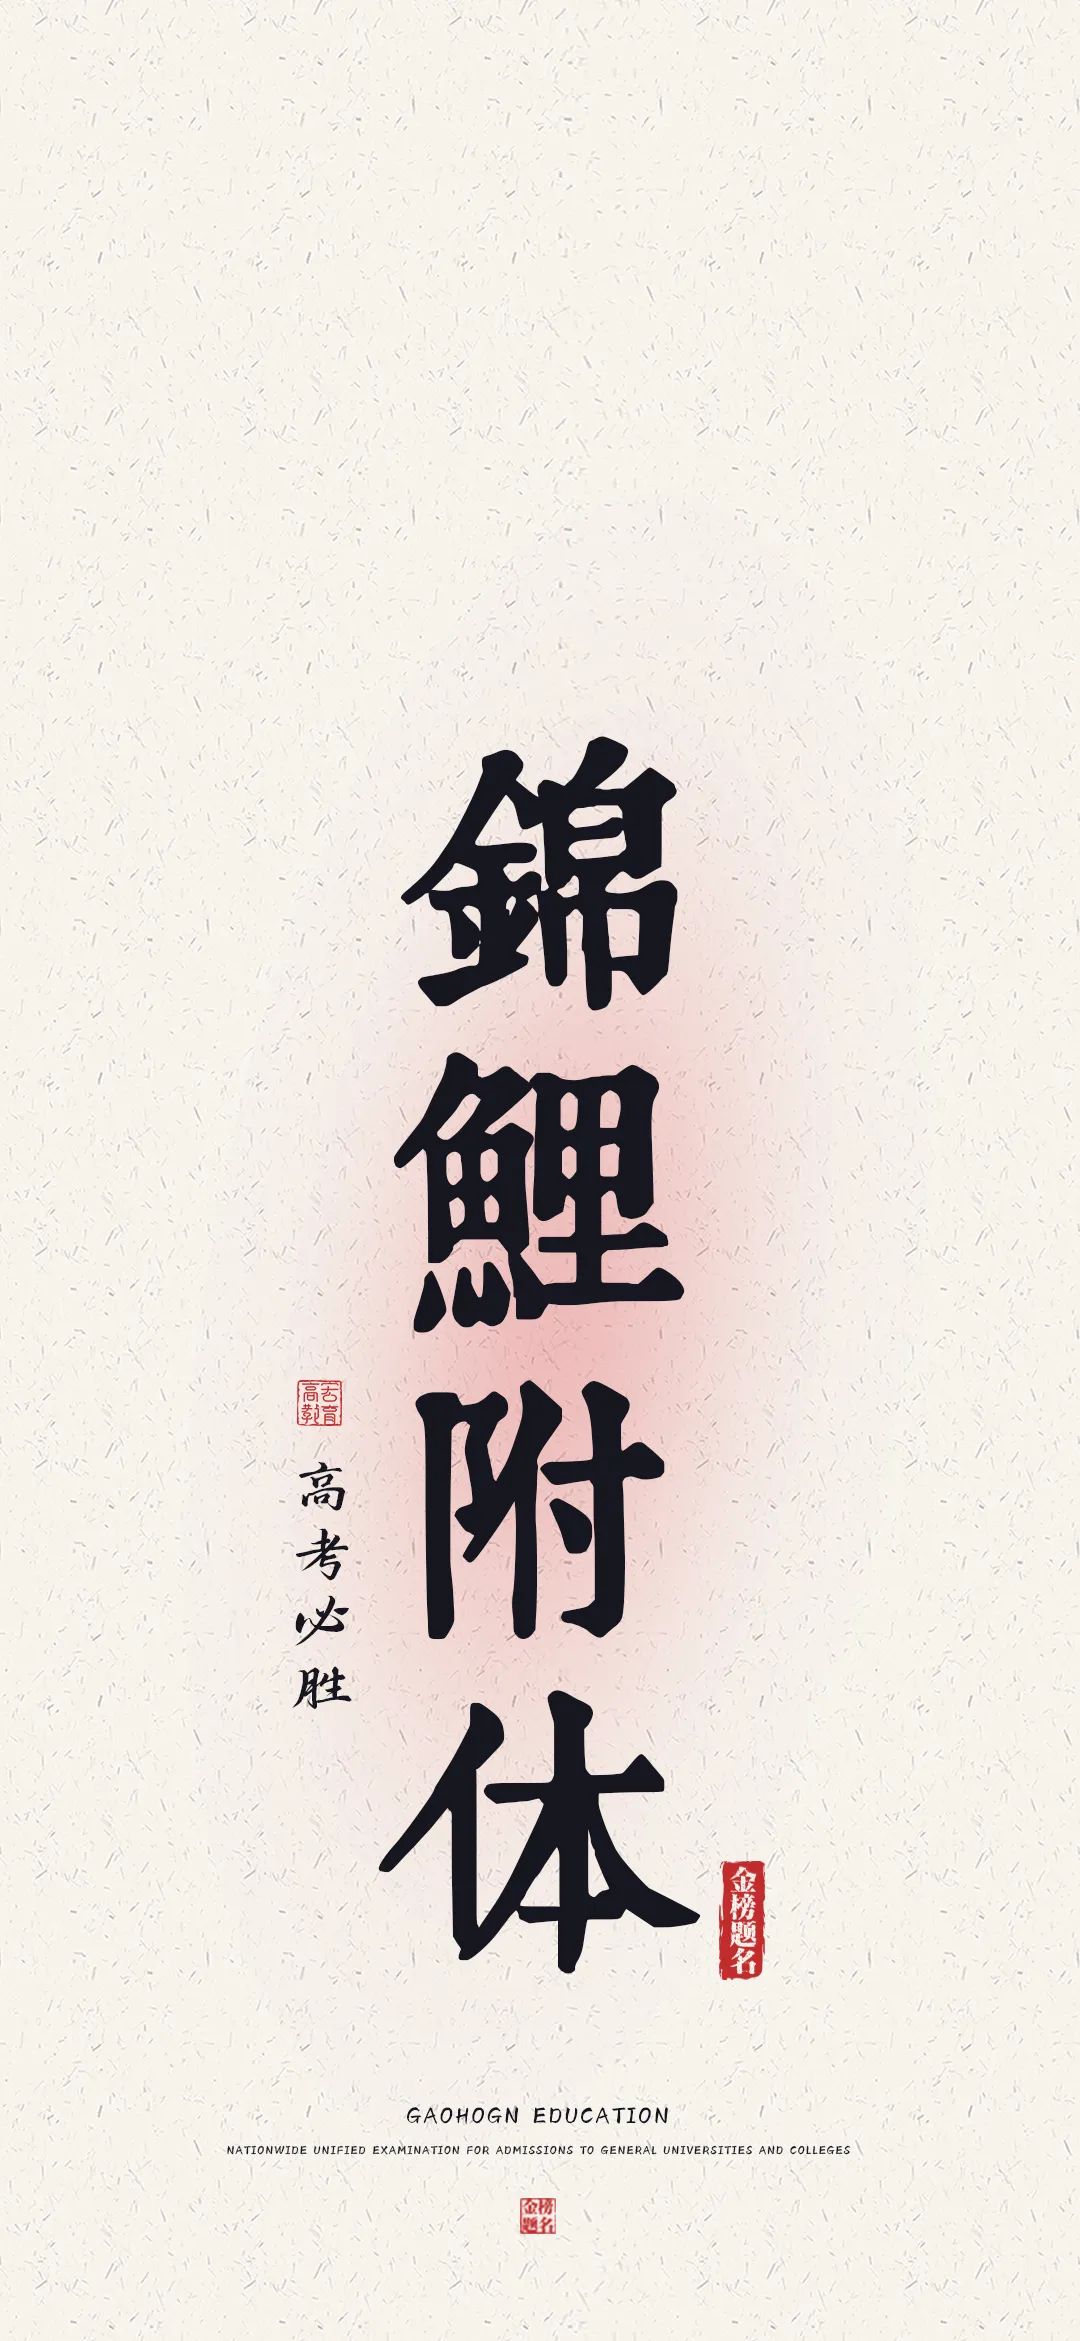 錦鯉附体
高考必胜
金榜题名
GAOHOGN EDUCATION
NATIONWIDE UNIFIED EXAMINATION FOR ADMISSIONS TO GENERAL UNIVERSITIES AND COLLEGES
金榜
题名